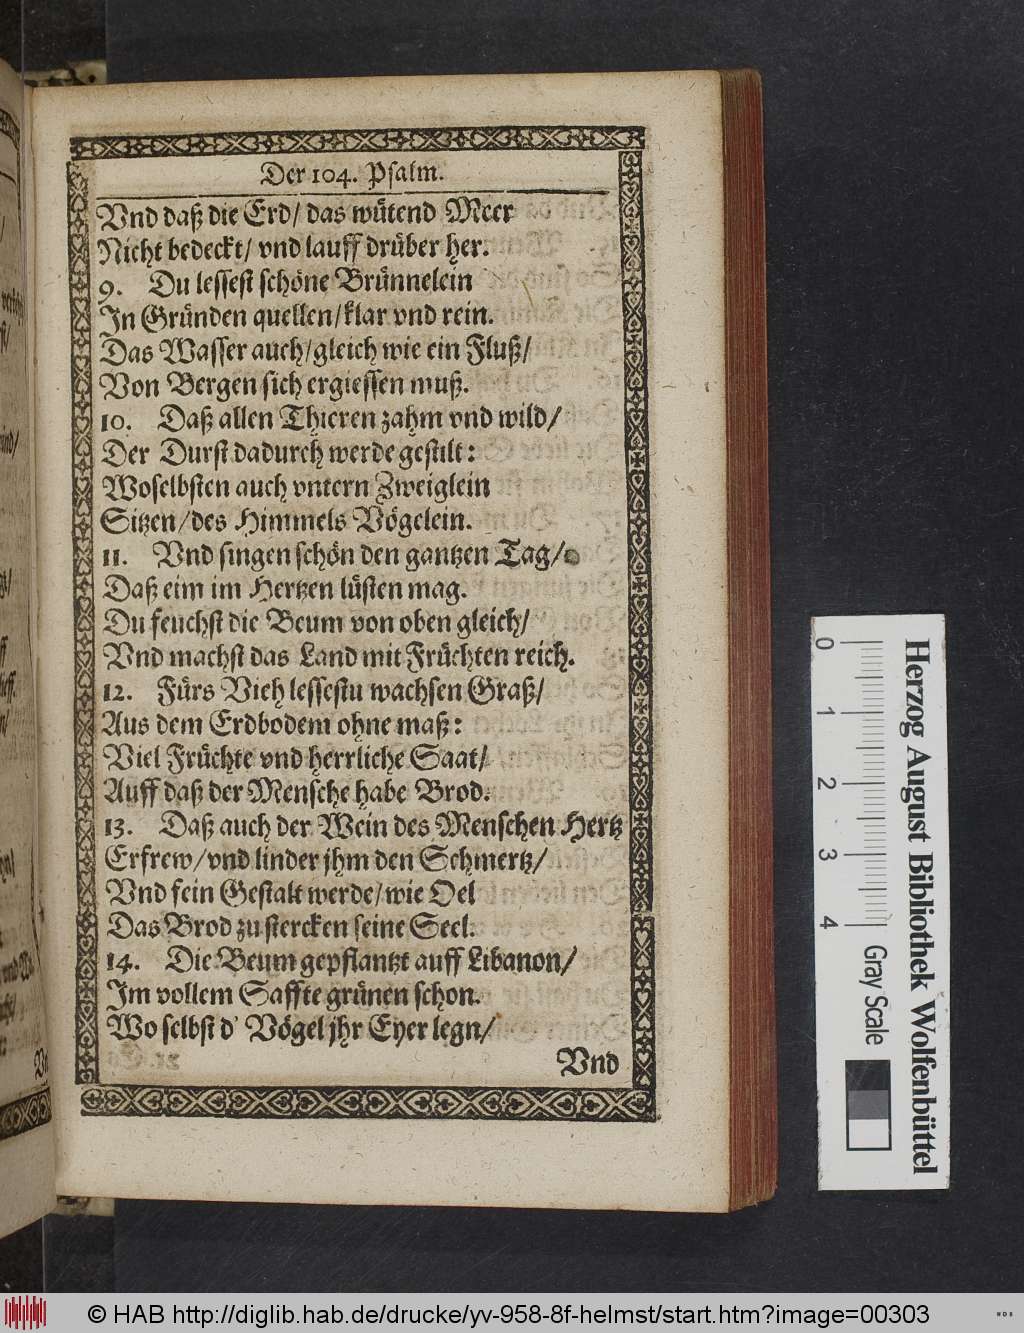 Der 104. Psalm.
Vnd daß die Erd/ das wütend Meer
Nicht bedeckt/ vnd lauff drüber her.
9. Du lessest schöne Brünnelein
In Gründen quellen/klar vnd rein.
Das Wasser auch/gleich wie ein Fluß/
Von Bergen sich ergiessen muß.
10. Daß allen Thieren zahm vnd wild/
Der Durst dadurch werde gestilt:
Woselbsten auch vntern Zweiglein
Sitzen/des Himmels Vögelein.
11. Vnd singen schön den gantzen Tag/
Daß eim im Hertzen lüsten mag.
Du feuchst die Beum von oben gleich/
Vnd machst das Land mit Früchten reich.
12. Fürs Vieh lessestu wachsen Graß/
Aus dem Erdbodem ohne maß:
Viel Früchte vnd herrliche Saat/
Auff daß der Mensche habe Brod.
13. Daß auch der Wein des Menschen Hertz
Erfrew/vnd linder jhm den Schmertz/
Vnd sein Gestalt werde/wie Oel
Das Brod zu stercken seine Seel.
14. Die Beum gepflantzt auff Libanon/
Im vollem Saffte grünen schon.
Wo selbst d' Vögel jhr Eyer legn/
Vnd
0 1 2 3 4
Herzog August Bibliothek Wolfenbüttel
Gray Scale
© HAB http://diglib.hab.de/drucke/yv-958-8f-helmst/start.htm?image=00303